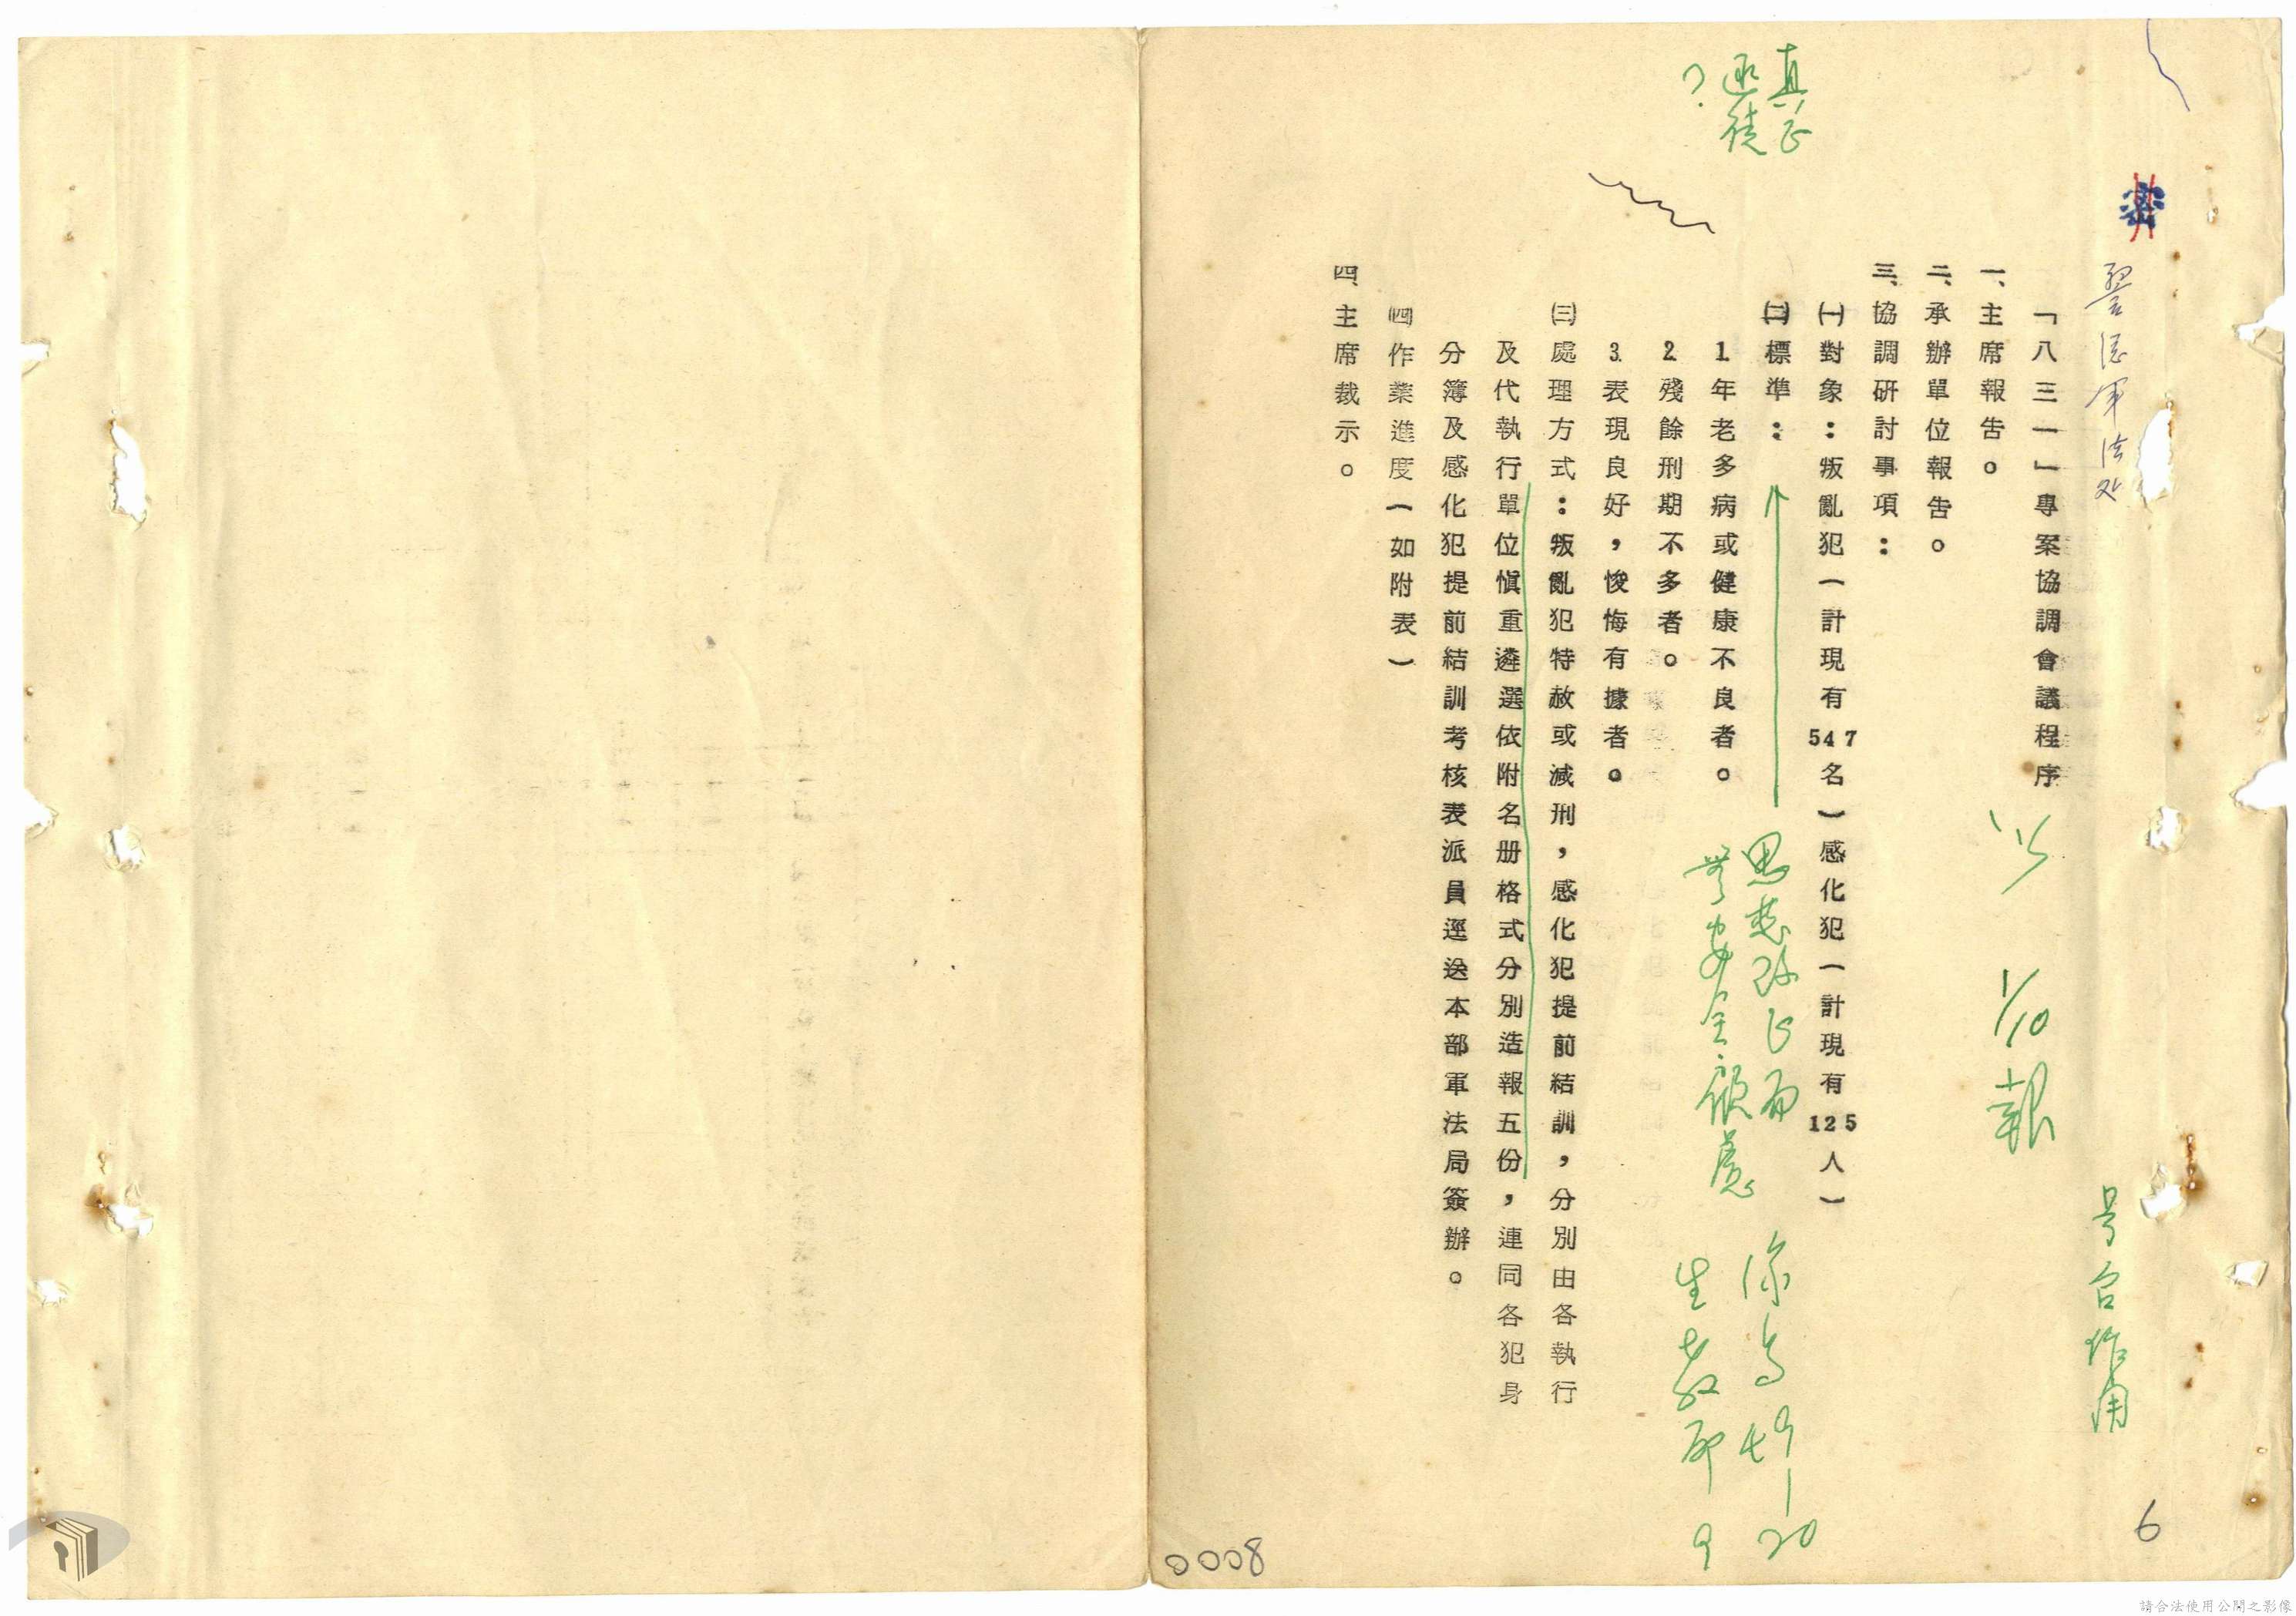 密
警总军法处
「八三一」專案協調會議程序
一、主席報告。
二、承辦單位報告。
三、協調研討事項：
㈠對象：叛亂犯（計現有547名）感化犯（計現有125人）
㈡標準：
1.年老多病或健康不良者。
2.殘餘刑期不多者。
3.表現良好，悛悔有據者。
㈢處理方式：叛亂犯特赦或減刑，感化犯提前結訓，分別由各執行
及代執行單位慎重遴選依附名册格式分別造報五份，連同各犯身
分簿及感化犯提前結訓考核表派員逕送本部軍法局簽辦。
㈣作業進度（如附表）
四、主席裁示。
真正
?
1/10報
思想改正而
無安全顧慮
生教所 9
20
作用
6
0008
請合法使用公開之影像